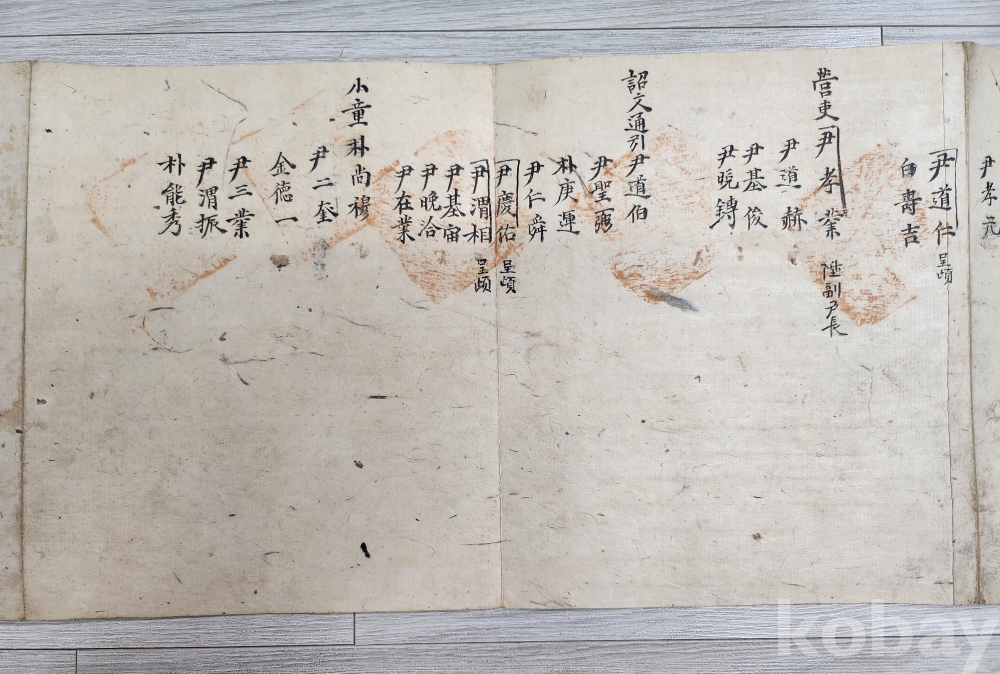 尹孝元
尹道仁 呈頉
白壽吉
營吏 尹孝業 陞副戶長
尹道赫
尹基俊
尹晩鑄
詔文通引 尹道伯
尹聖弼
朴庚運
尹仁舜
尹慶佑 呈頉
尹渭相 呈頉
尹基宙
尹晩洽
尹在業
小童 朴尚穆
尹二奎
金德一
尹三業
尹渭振
朴能秀
kobay